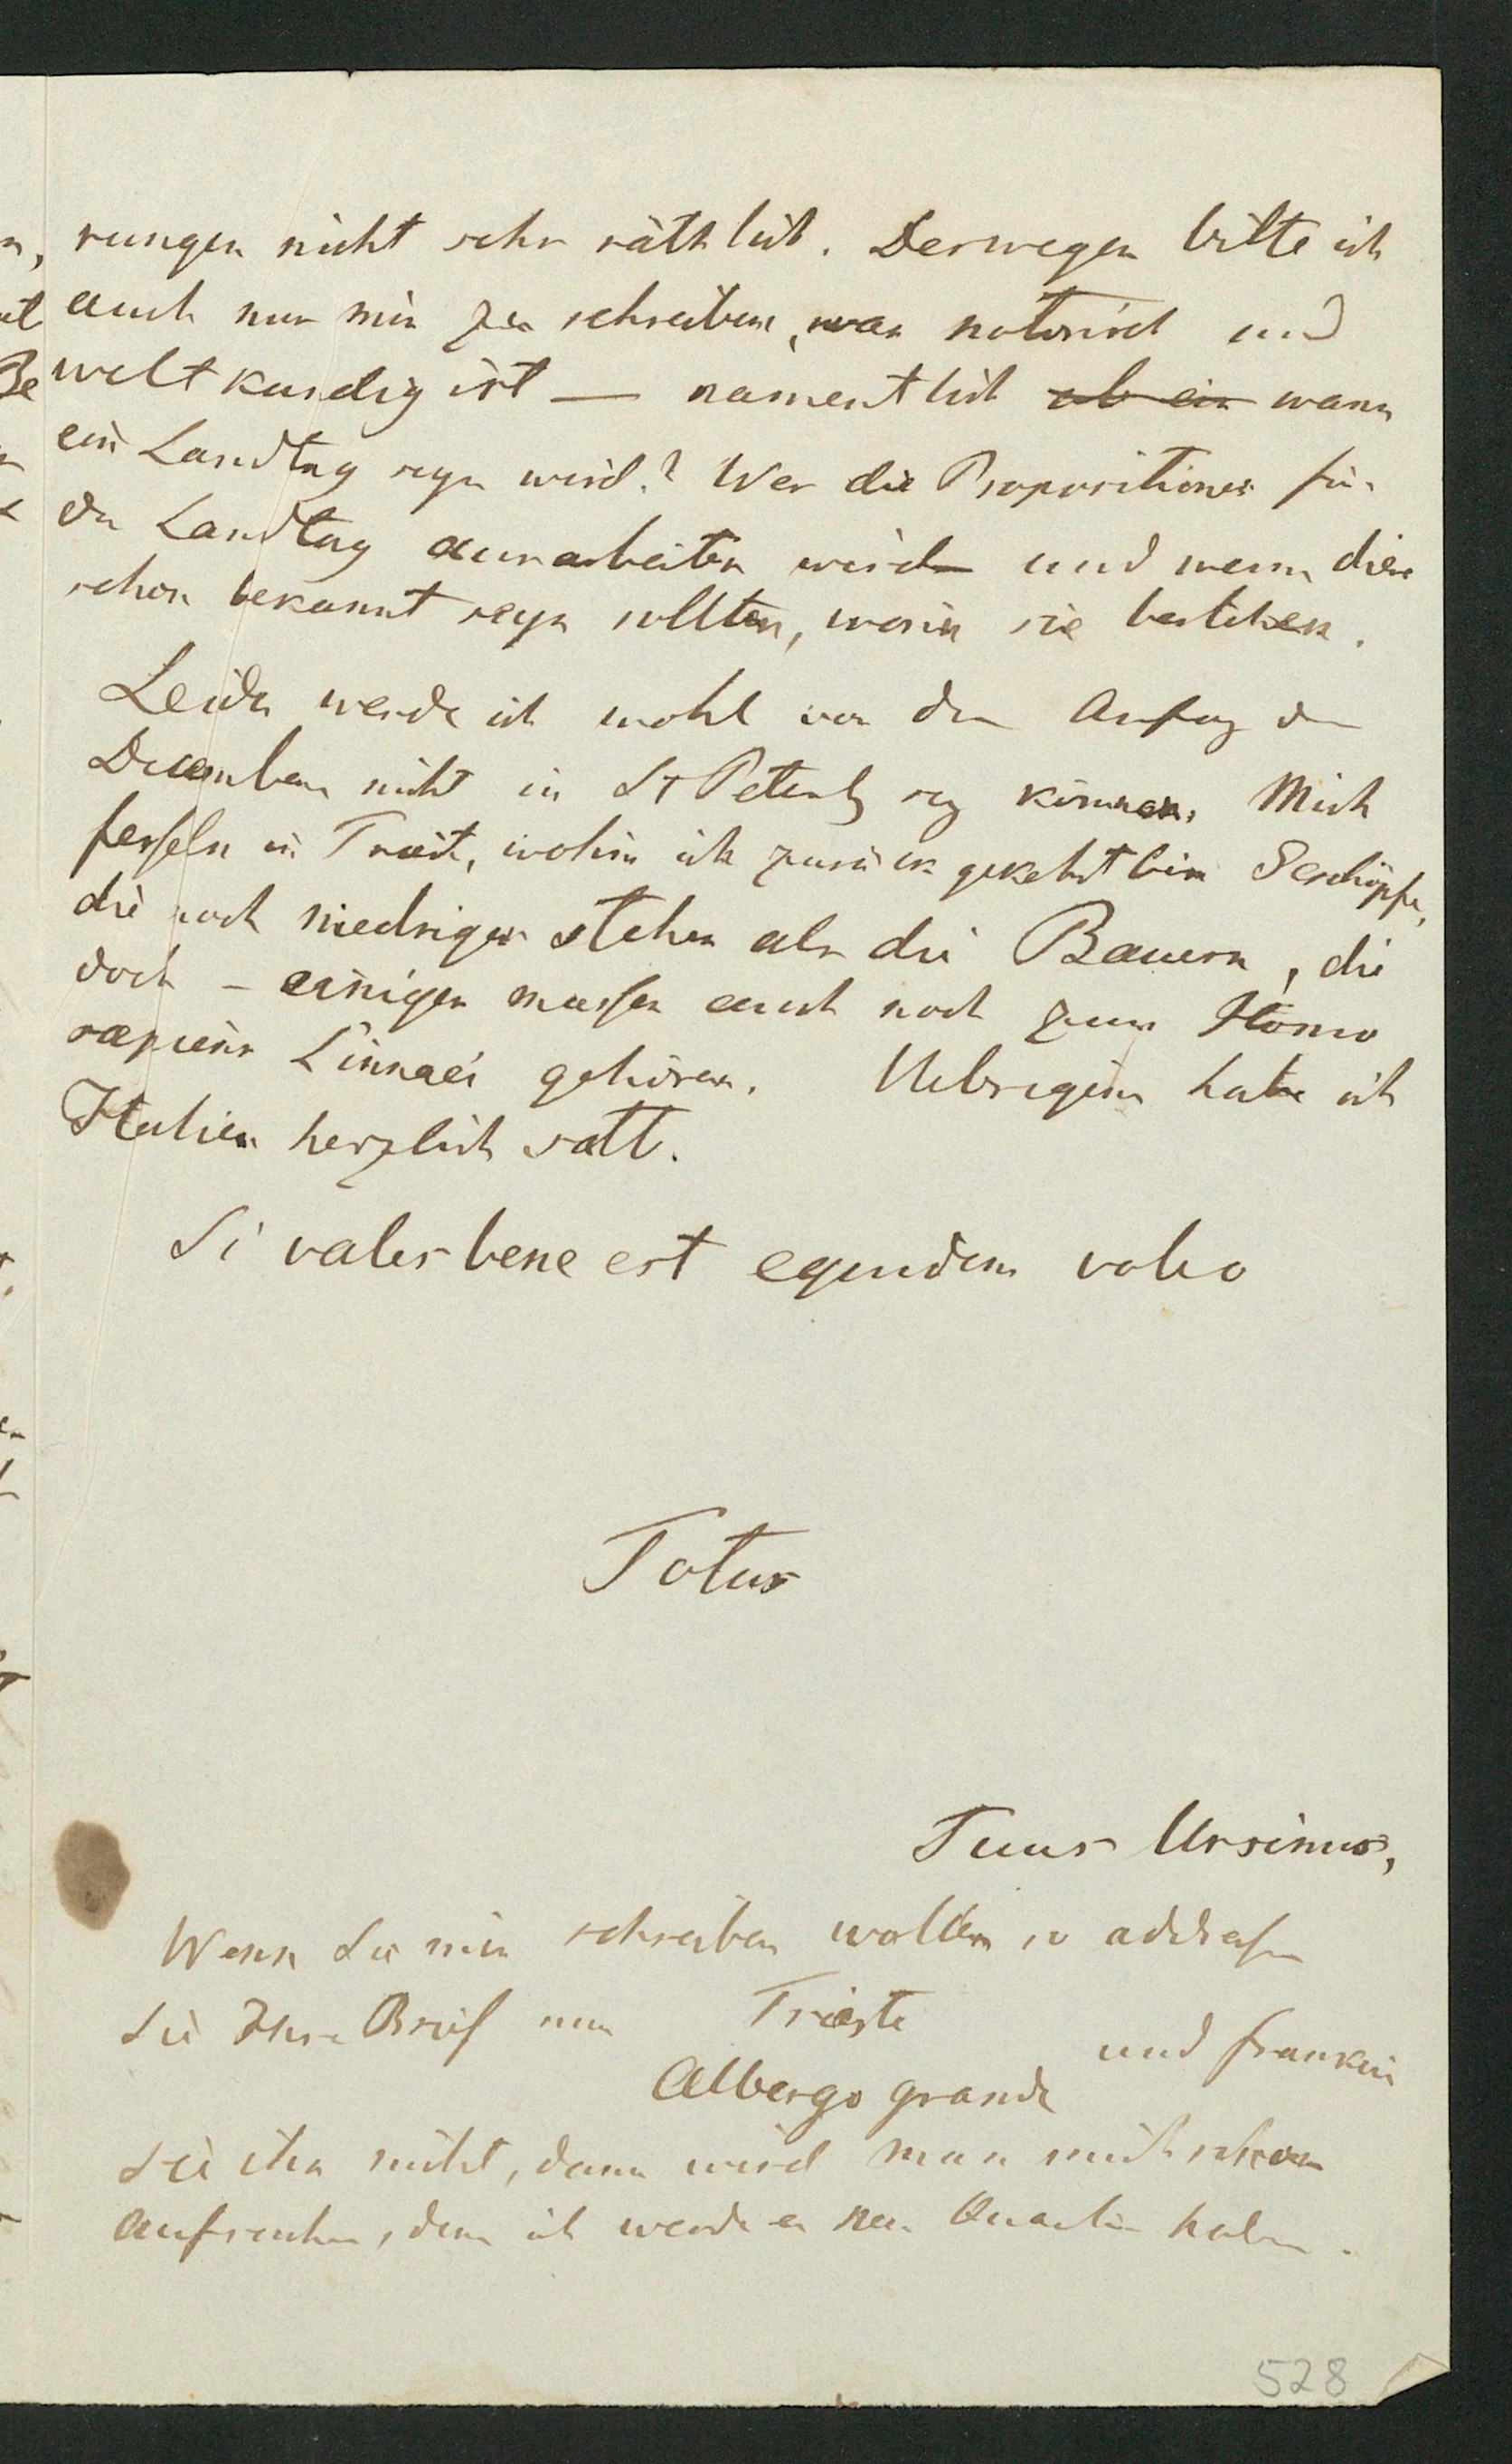 rungen nicht sehr räthlich. Deswegen bitte ich
auch nur mir zu schreiben, was notorisch und
weltkundig ist — namentlich ob ein wann
ein Landtag seyn wird? Wer die Propositionen für
den Landtag ausarbeiten wird und wenn diese
schon bekannt seyn sollten, worin sie bestehen.
Leider werde ich wohl vor dem Anfang des
Decembers nicht in St Petersb seyn können. Mich
fesseln in Triest, wohin ich zurück gekehrt bin Geschöpfe,
die noch niedriger stehen als die Bauern, die
doch – einigermassen auch noch zum Homo
sapiens Linnaei gehören. Uebrigens habe ich
Italien herzlich satt.
Si vales bene est equidem valeo
Totus
Tuus Ursinus,
Wenn Sie mir schreiben wollen so addressiren
Sie Ihre Brief nur Trieste
Albergo grande und frankiren
Sie ihn nicht, dann wird man mich schon
aufsuchen, denn ich werde ein neu Quartier haben.
528